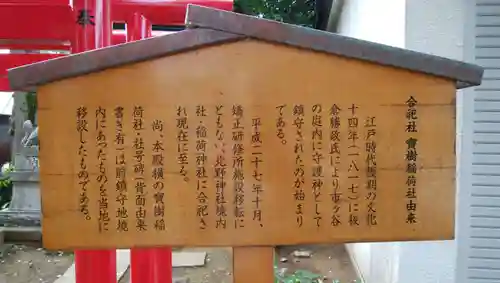 奉
合祀社 寶樹稲荷社由来
江戸時代後期の文化
十四年(一八一七)に板
倉勝政氏により市ヶ谷
の庭内に守護神として
鎮守されたのが始まり
である。
平成二十七年十月、
矯正研修所移転に
ともない、北野神社境内
社・稲荷神社に合祀さ
れ現在に至る。
尚、本殿横の寶樹稲
荷社・社号碑(背面由来
書き有)は前鎮守地境
内にあったものを当地に
移設したものである。